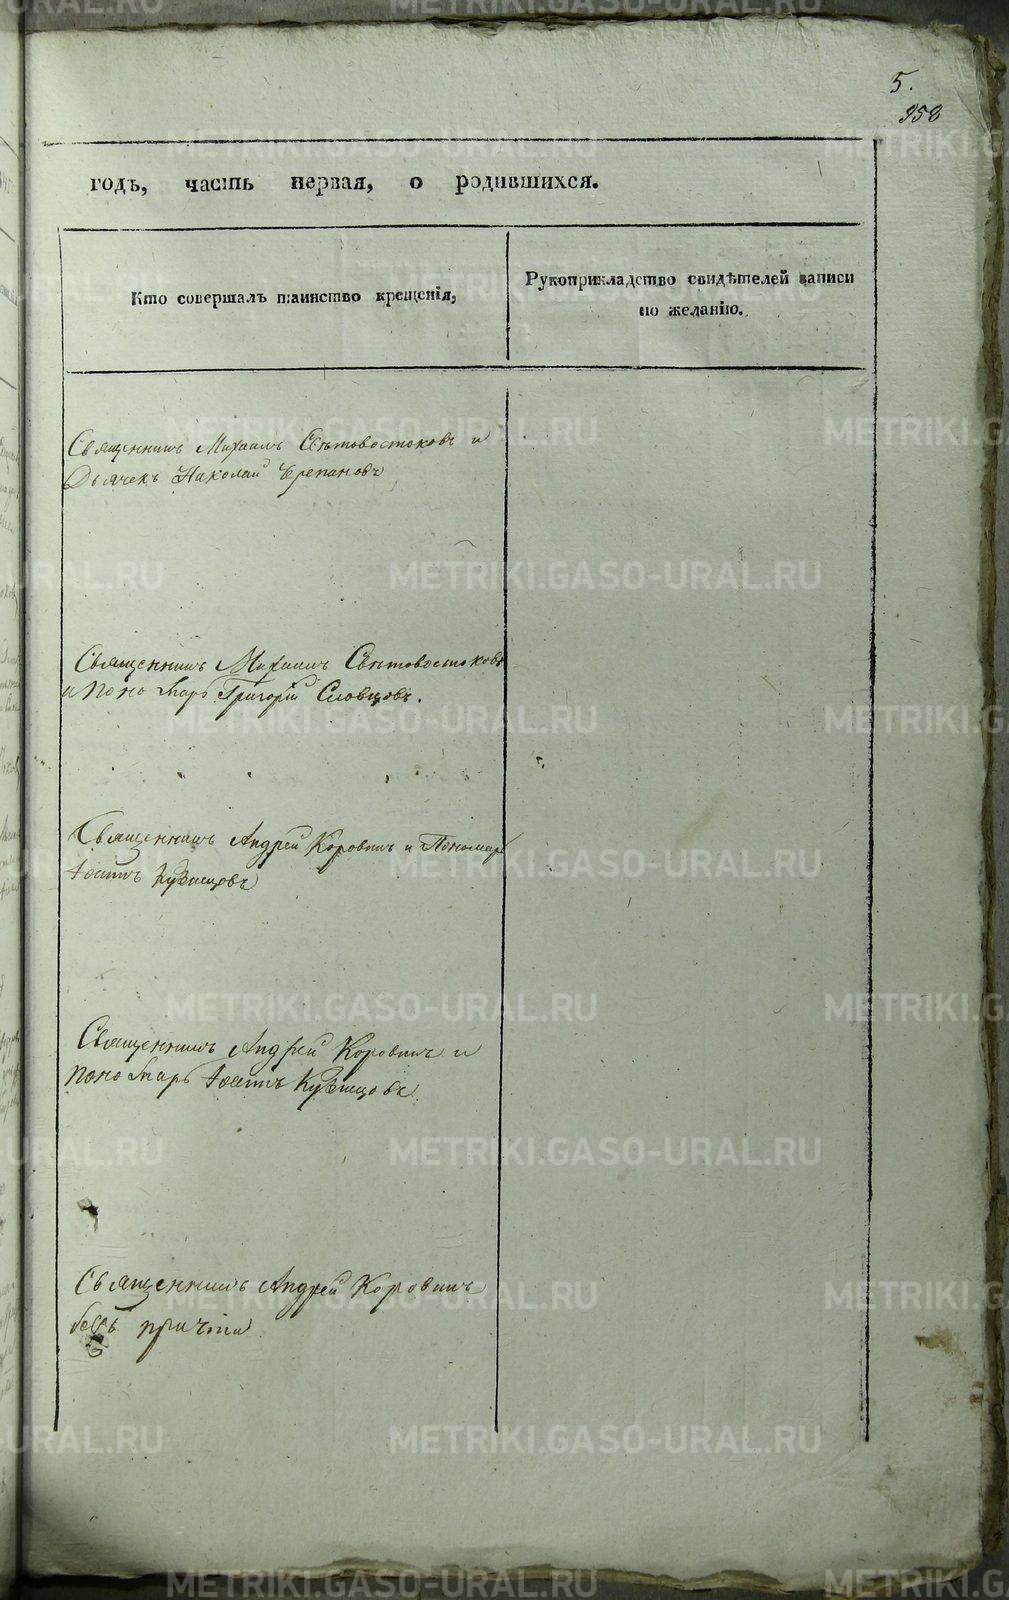 5.
958
годъ, часть первая, о родившихся.
Кто совершалъ таинство крещенія,
Рукоприкладство свидѣтелей записи
по желанію.
Священникъ Михаилъ Свѣтовостоковъ и
Дьячекъ Николай Черепановъ
Священникъ Михаилъ Свѣтовостоковъ
и пономарь Григорій Словцовъ.
Священникъ Андрей Коровинъ и Пономарь
Іоаннъ Кузнецовъ
Священникъ Андрей Коровинъ и
пономарь Іоаннъ Кузнецовъ.
Священникъ Андрей Коровинъ
безъ причта
METRIKI.GASO-URAL.RU